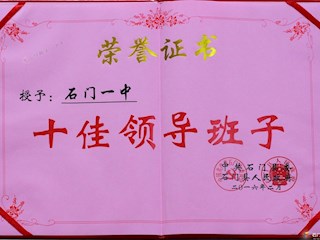 荣誉证书
授予：石门一中
十佳领导班子
中共石门县委
石门县人民政府
二〇一六年二月